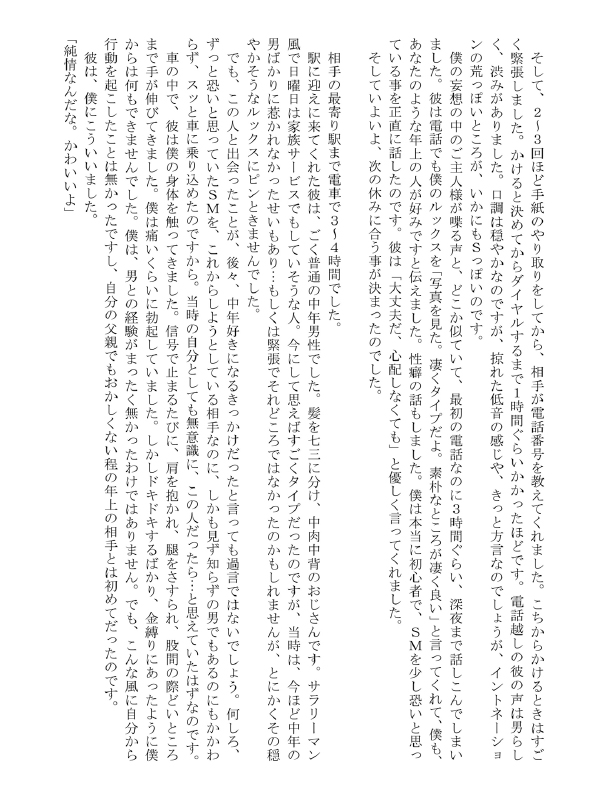 そして、２～３回ほど手紙のやり取りをしてから、相手が電話番号を教えてくれました。こちからかけるときはすご
く緊張しました。かけると決めてからダイヤルするまで１時間ぐらいかかったほどです。電話越しの彼の声は男らし
く、渋みがありました。口調は穏やかなのですが、掠れた低音の感じや、きっと方言なのでしょうが、イントネーショ
ンの荒っぽいところが、いかにもＳっぽいのです。
僕の妄想の中のご主人様が喋る声と、どこか似ていて、最初の電話なのに３時間ぐらい、深夜まで話しこんでしまい
ました。彼は電話でも僕のルックスを「写真を見た。凄くタイプだよ。素朴なところが凄く良い」と言ってくれて、僕も、
あなたのような年上の人が好みですと伝えました。性癖の話もしました。僕は本当に初心者で、ＳＭを少し恐いと思っ
ている事を正直に話したのです。彼は「大丈夫だ、心配しなくても」と優しく言ってくれました。
そしていよいよ、次の休みに合う事が決まったのでした。
相手の最寄り駅まで電車で３～４時間でした。
駅に迎えに来てくれた彼は、ごく普通の中年男性でした。髪を七三に分け、中肉中背のおじさんです。サラリーマン
風で日曜日は家族サービスでもしていそうな人。今にして思えばすごくタイプだったのですが、当時は、今ほど中年の
男ばかりに惹かれなかったせいもあり…もしくは緊張でそれどころではなかったのかもしれませんが、とにかくその穏
やかそうなルックスにピンときませんでした。
でも、この人と出会ったことが、後々、中年好きになるきっかけだったと言っても過言ではないでしょう。何しろ、
ずっと恐いと思っていたＳＭを、これからしようとしている相手なのに、しかも見ず知らずの男でもあるのにもかかわ
らず、スッと車に乗り込めたのですから。当時の自分としても無意識に、この人だったら…と思えていたはずなのです。
車の中で、彼は僕の身体を触ってきました。信号で止まるたびに、肩を抱かれ、腿をさすられ、股間の際どいところ
まで手が伸びてきました。僕は痛いくらいに勃起していました。しかしドキドキするばかり、金縛りにあったように僕
からは何もできませんでした。僕は、男との経験がまったく無かったわけではありません。でも、こんな風に自分から
行動を起こしたことは無かったですし、自分の父親でもおかしくない程の年上の相手とは初めてだったのです。
彼は、僕にこういいました。
「純情なんだな。かわいいよ」